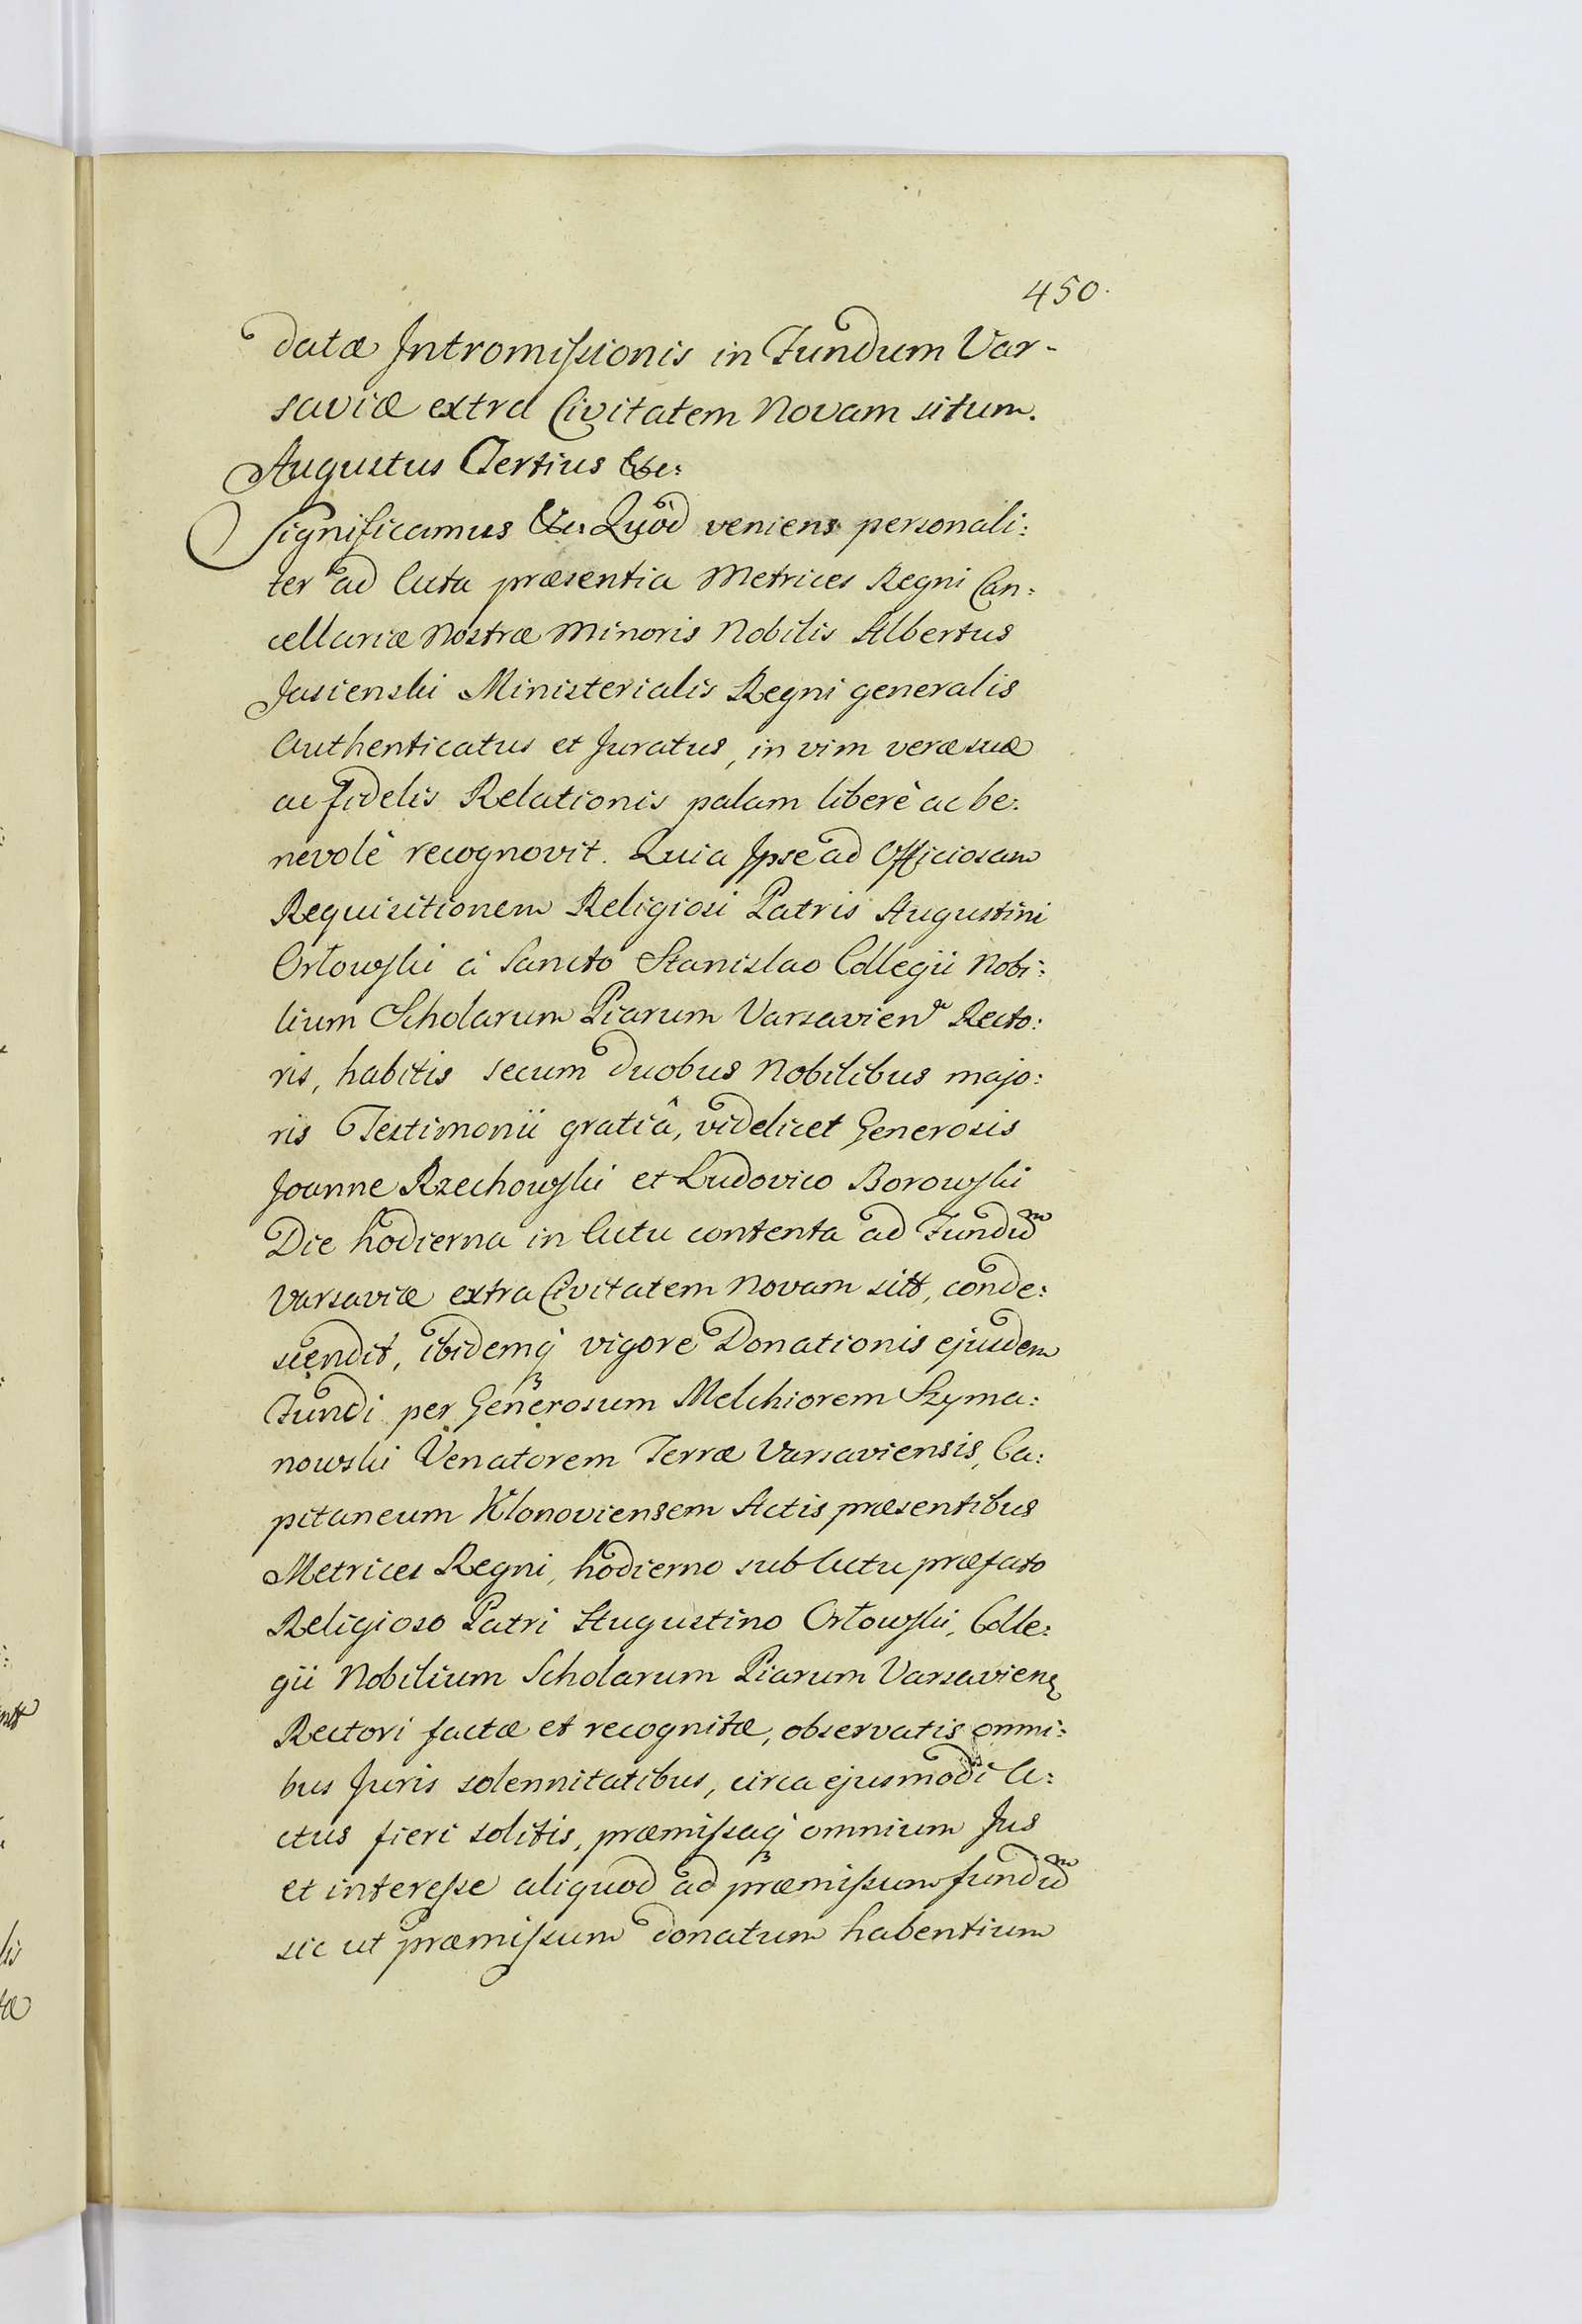 450.
datæ Intromissionis in Fundum Var-
saviæ extra Civitatem Novam situm.
Augustus Tertius &c:
Significamus &c. Quòd veniens personali:
ter ad Acta præsentia Metrices Regni Can:
cellariæ Nostræ Minoris Nobilis Albertus
Jasienski Ministerialis Regni generalis
Authenticatus et Juratus, in vim veræ suæ
ac fidelis Relationis palam liberè ac be:
nevolè recognovit. Quia Ipse ad Officiosam
Requisitionem Religiosi Patris Augustini
Orłowski à Sancto Stanislao Collegii Nobi:
lium Scholarum Piarum Varsavien Recto:
ris, habitis secum duobus Nobilibus majo:
ris Testimonii gratiâ, videlicet Generosis
Joanne Rzechowski et Ludovico Borowski
Die hodierna in Actu contenta ad Fundũ
Varsaviæ extra Civitatem Novam sitt, conde:
scendit, ibidemq vigore Donationis ejusdem
Fundi per Generosum Melchiorem Szyma:
nowski Venatorem Terræ Varsaviensis, Ca:
pitaneum Klonoviensem Actis præsentibus
Metrices Regni, hodierno sub Actu præfato
Religioso Patri Augustino Orłowski, Colle:
gii Nobilium Scholarum Piarum Varsavien
Rectori factæ et recognitæ, observatis omni:
bus Juris solennitatibus, circa ejusmodi A:
ctus fieri solitis, præmissaq omnium Jus
et interesse aliquod ad præmissum fundũ
sic ut præmissum donatum habentium